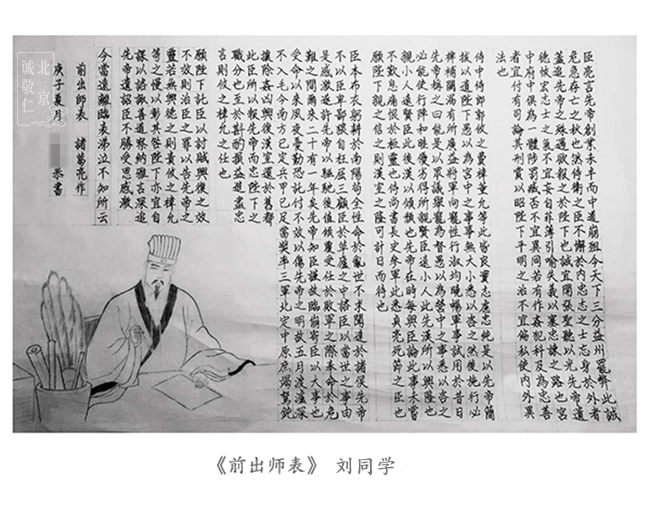 臣亮言先帝創業未半而中道崩殂今天下三分益州罷弊此誠
危急存亡之秋也然侍衛之臣不懈於內忠志之士忘身於外者
蓋追先帝之殊遇欲報之於陛下也誠宜開張聖聽以光先帝遺
德恢宏志士之氣不宜妄自菲薄引喻失義以塞忠諫之路也宮
中府中俱為一體陟罰臧否不宜異同若有作姦犯科及為忠善
者宜付有司論其刑賞以昭陛下平明之治不宜偏私使內外異
法也
侍中侍郎郭攸之費禕董允等此皆良實志慮忠純是以先帝簡
拔以遺陛下愚以為宮中之事事無大小悉以咨之然後施行必
裨補闕漏有所廣益將軍向寵性行淑均曉暢軍事試用於昔日
先帝稱之曰能是以眾議舉寵為督愚以為營中之事悉以咨之
必能使行陣和睦優劣得所親賢臣遠小人此先漢所以興隆也
親小人遠賢臣此後漢所以傾頹也先帝在時每與臣論此事未嘗
不歎息痛恨於桓靈也侍中尚書長史參軍此悉貞亮死節之臣也
願陛下親之信之則漢室之隆可計日而待也
臣本布衣躬耕於南陽苟全性命於亂世不求聞達於諸侯先帝
不以臣卑鄙猥自枉屈三顧臣於草廬之中諮臣以當世之事由
是感激遂許先帝以驅馳後值傾覆受任於敗軍之際奉命於危
難之間爾來二十有一年矣先帝知臣謹慎故臨崩寄臣以大事也
受命以來夙夜憂勤恐託付不效以傷先帝之明故五月渡瀘深
入不毛今南方已定兵甲已足當獎率三軍北定中原庶竭駑鈍
攘除姦凶興復漢室還於舊都
此臣所以報先帝而忠陛下之
職分也至於斟酌損益進盡忠
言則攸之禕允之任也
願陛下託臣以討賊興復之效
不效則治臣之罪以告先帝之
靈若無興德之則責攸之禕允
等之慢以彰其咎陛下亦宜自
謀以諮諏善道察納雅言深追
先帝遺詔臣不勝受恩感激
今當遠離臨表涕泣不知所云
前出師表 諸葛亮作
庚子夏月 恭書
北京
诚敬仁
《前出师表》 刘同学